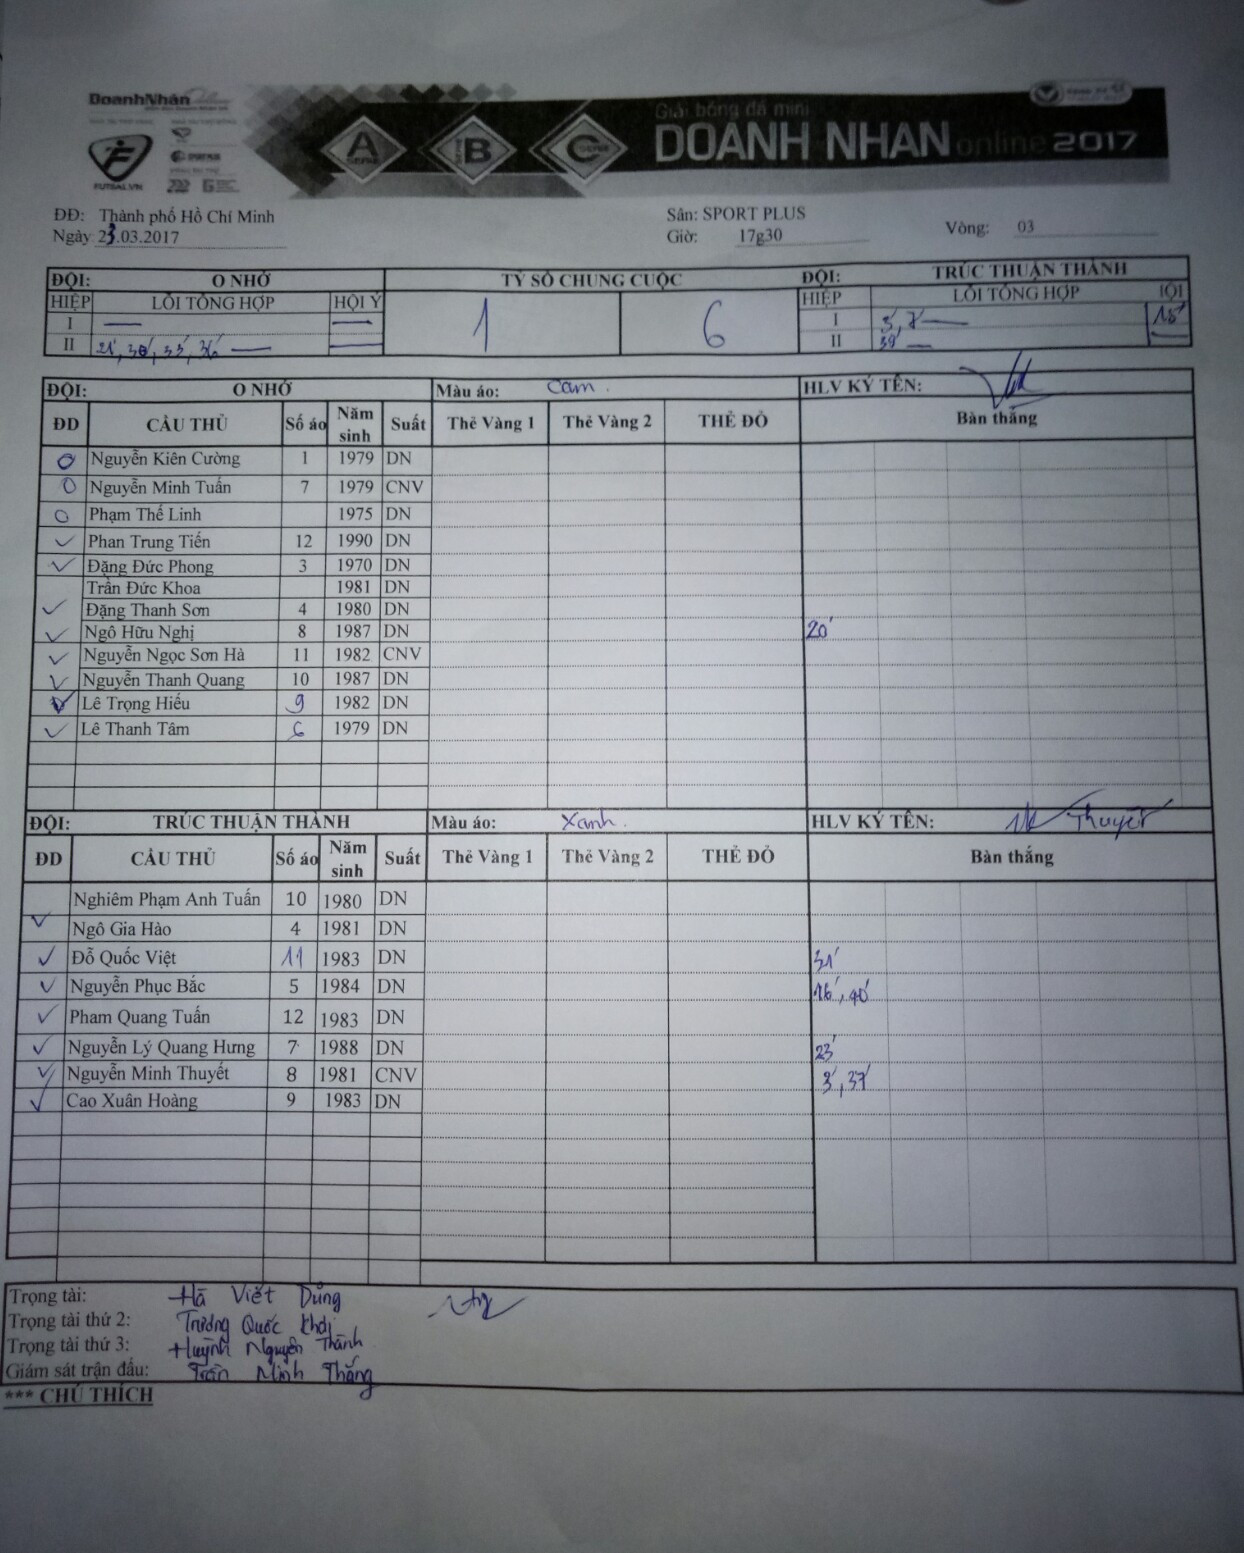 DoanhNhân Online
FUTSAL.VN
A SERIE
B SERIE
C SERIE
Giải bóng đá mini
DOANH NHAN online 2017
ĐĐ: Thành phố Hồ Chí Minh Sân: SPORT PLUS
Ngày 23.03.2017 Giờ: 17g30 Vòng: 03
ĐỘI: O NHỚ TỶ SỐ CHUNG CUỘC ĐỘI: TRÚC THUẬN THÀNH
HIỆP LỖI TỔNG HỢP HỘI Ý 1 6 HIỆP LỖI TỔNG HỢP IỘI
I — — I 3, 7 — 15'
II 21', 30', 33', 36' — — II 39' — —
ĐỘI: O NHỚ Màu áo: Cam. HLV KÝ TÊN:
ĐD CẦU THỦ Số áo Năm sinh Suất Thẻ Vàng 1 Thẻ Vàng 2 THẺ ĐỎ Bàn thắng
Nguyễn Kiên Cường 1 1979 DN
Nguyễn Minh Tuấn 7 1979 CNV
Phạm Thế Linh 1975 DN
Phan Trung Tiến 12 1990 DN
Đặng Đức Phong 3 1970 DN
Trần Đức Khoa 1981 DN
Đặng Thanh Sơn 4 1980 DN
Ngô Hữu Nghị 8 1987 DN 20'
Nguyễn Ngọc Sơn Hà 11 1982 CNV
Nguyễn Thanh Quang 10 1987 DN
Lê Trọng Hiếu 9 1982 DN
Lê Thanh Tâm 6 1979 DN
ĐỘI: TRÚC THUẬN THÀNH Màu áo: Xanh. HLV KÝ TÊN: Thuyết
ĐD CẦU THỦ Số áo Năm sinh Suất Thẻ Vàng 1 Thẻ Vàng 2 THẺ ĐỎ Bàn thắng
Nghiêm Phạm Anh Tuấn 10 1980 DN
Ngô Gia Hào 4 1981 DN
Đỗ Quốc Việt 11 1983 DN 31'
Nguyễn Phục Bắc 5 1984 DN 16', 40'
Pham Quang Tuấn 12 1983 DN
Nguyễn Lý Quang Hưng 7 1988 DN 23'
Nguyễn Minh Thuyết 8 1981 CNV 3', 37'
Cao Xuân Hoàng 9 1983 DN
Trọng tài: Hà Viết Dũng
Trọng tài thứ 2: Trương Quốc Khải
Trọng tài thứ 3: Huỳnh Nguyên Thành
Giám sát trận đấu: Trần Minh Thắng
*** CHÚ THÍCH